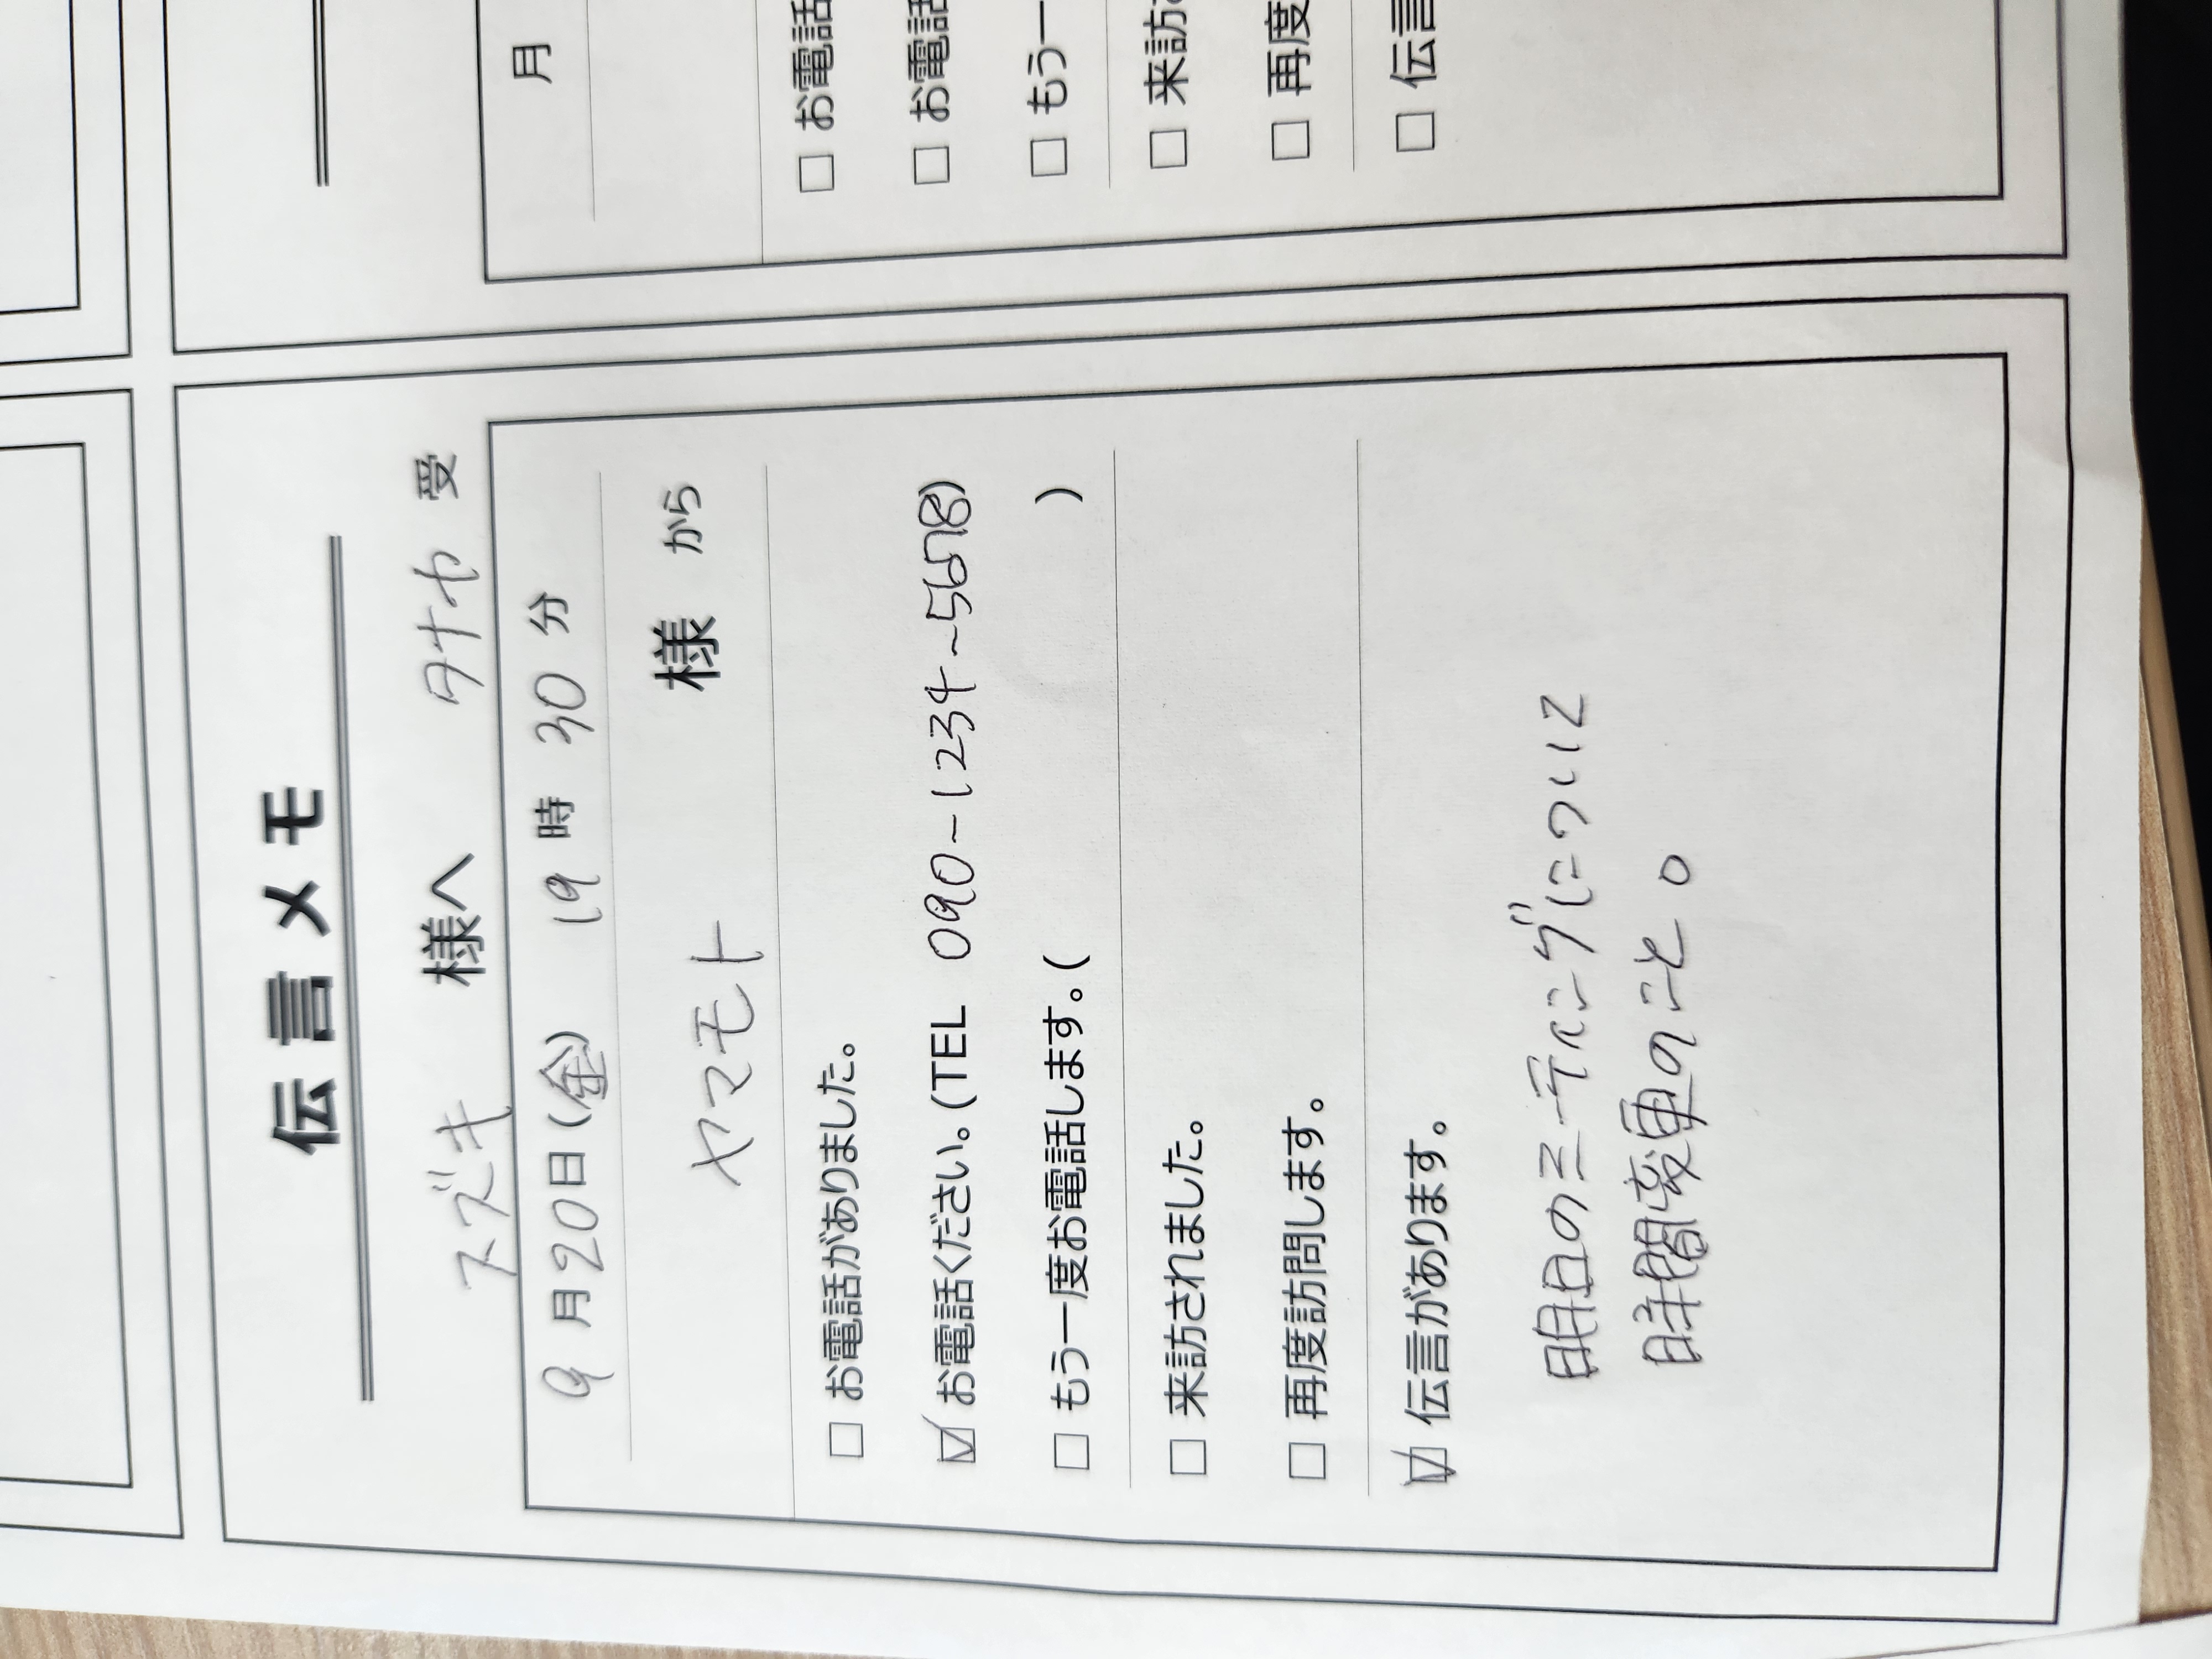 伝言メモ
スズキ 様へ タナカ 受
9月20日(金) 19時30分
ヤマモト 様 から
□ お電話がありました。
☑ お電話ください。(TEL 090-1234-5678)
□ もう一度お電話します。( )
□ 来訪されました。
□ 再度訪問します。
☑ 伝言があります。
明日のミーティングについて
時間変更のこと。
月
□ お電話
□ お電話
□ もう一
□ 来訪
□ 再度
□ 伝言